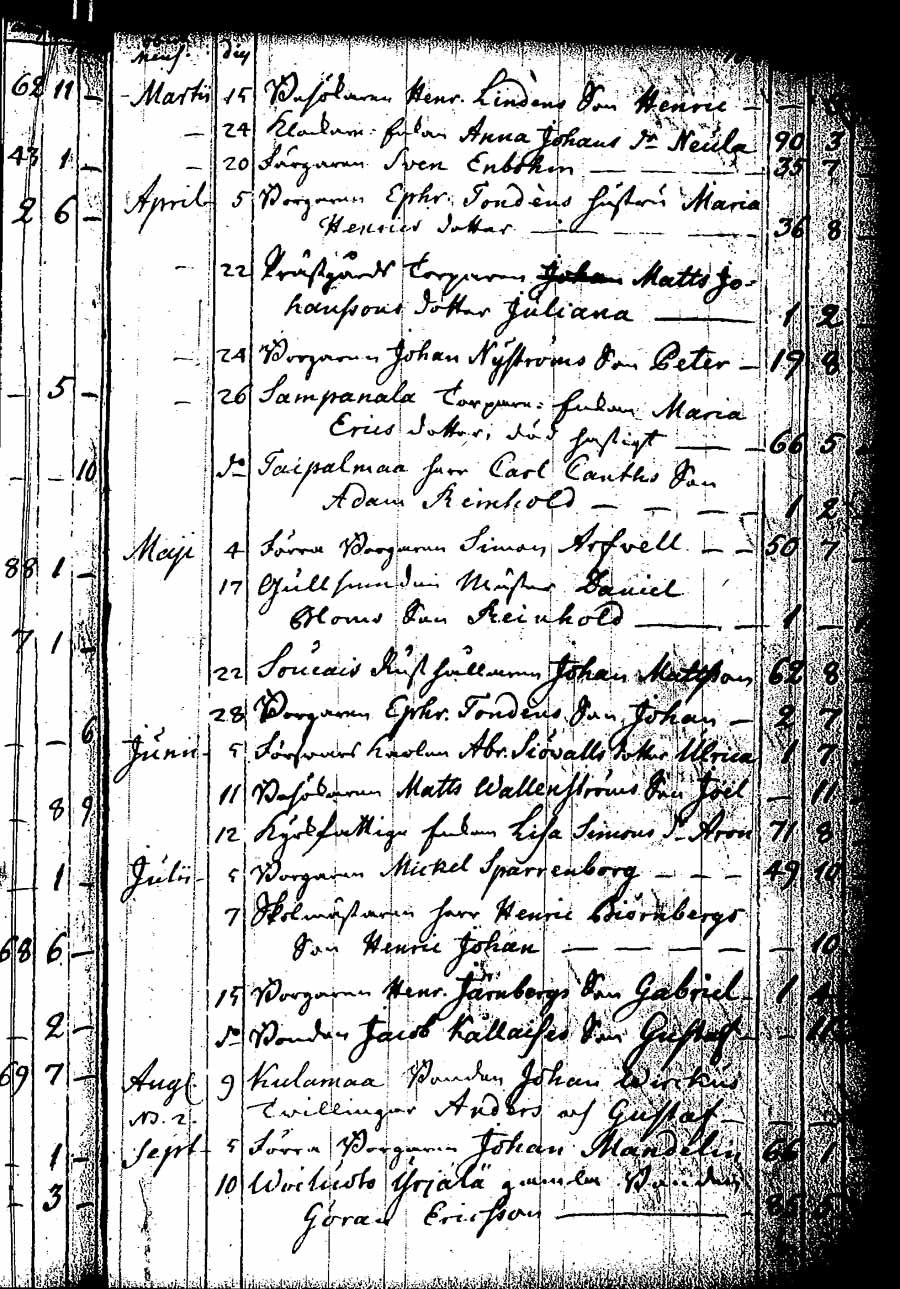 Mens. die
62 11 - Martii 15 Besökaren Henr. Lindens Son Henric - -
- 24 Klockare Enkan Anna Johans dr Neula 90 3
43 1 - 20 Färgaren Sven Enbohm - 35 7 -
2 6 - April 5 Borgaren Ephr. Tondèns hustru Maria
Henrics dotter - 36 8 -
- 22 Prästgårds Torparen Johan Matts Jo-
hanssons dotter Juliana - 1 2 -
- 24 Borgaren Johan Nyströms Son Peter - 19 8
- 5 - 26 Sampanala Torpare: Enkan Maria
Erics dotter, död hastigt - 66 5 -
- - 10 do Taipalmaa herr Carl Canths Son
Adam Reinhold - - - 1 2
88 1 - Maji 4 Förra Borgaren Simon Arfwell - - 50 7 -
17 Gullsmeden Mäster Daniel
7 1 - Bloms Son Reinhold - 1 -
22 Rusthållaren Johan Mattsson 62 8 -
28 Borgaren Ephr. Tondens Son Johan - 2 7
- - 6 Junii - 5 Abr. Siövalls dotter Ulrica 1 7
11 Besökaren Matts Wallenströms Son Joël - 11
- 8 9 12 Kyrkfattiga Enkan Lisa Simons dr Aron 71 8
- 1 - Julii - 5 Borgaren Mickel Sparrenborg - - - 49 10
7 Skolmästaren herr Henric Biörnbergs
68 6 - Son Henric Johan - - - - 10
15 Borgaren Henr. Järnbergs Son Gabriel - 1 4
- 2 - do Bonden Jacob Källaises Son Gustaf - - 11
69 7 - Aug. 9 Kulamaa Bonden Johan Wirckus
No. 2. Twillingar Anders och Gustaf - - -
- 1 - Sept - 5 Förra Borgaren Johan Mandelin 66 1
10 Yrjälä gamla Bonden
- 3 - Göran Ericsson - 86 5